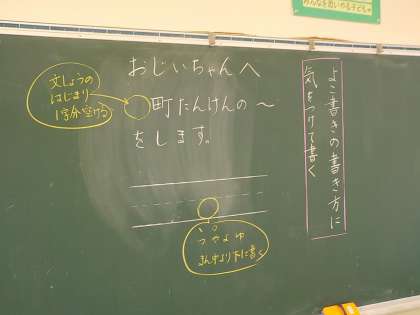 みんなを思いやる子どもが
よこ書きの書き方に
気をつけて書く
文しょうの
はじまり
1字分空ける
おじいちゃんへ
町たんけんの〜
をします。
っゃょゅ
まん中より下に書く